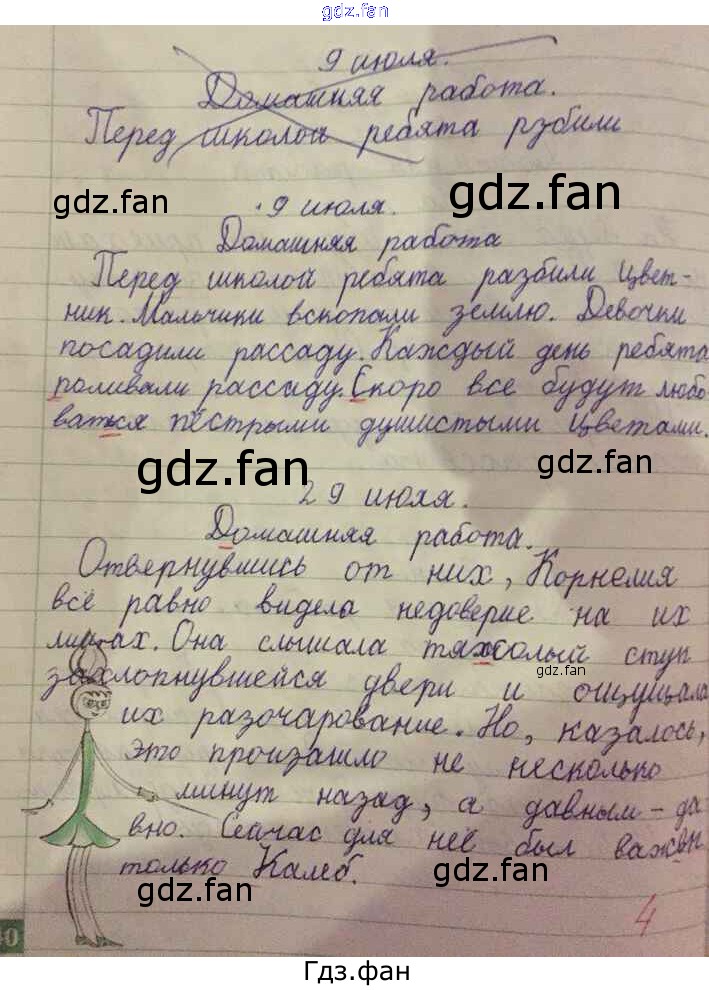 gdz.fan
9 июля.
Домашняя работа.
Перед школой ребята рзбили
gdz.fan
gdz.fan
9 июля.
Домашняя работа
Перед школой ребята разбили цвет-
ник. Мальчики вскопали землю. Девочки
посадили рассаду. Каждый день ребята
поливали рассаду. Скоро все будут любо
ватся пёстрыми душистыми цветами.
gdz.fan
gdz.fan
29 июля.
Домашняя работа.
Отвернувшись от них, Корнелия
всё равно видела недоверие на их
лицах. Она слышала тяжолый ступ
gdz.fan
захлопнувшейся двери и ощущала
их разочарование. Но, казалось,
это произашло не несколько
минут назад, а давным-да
вно. Сейчас для неё был важен
только Калеб.
gdz.fan
gdz.fan
4
40
Гдз.фан